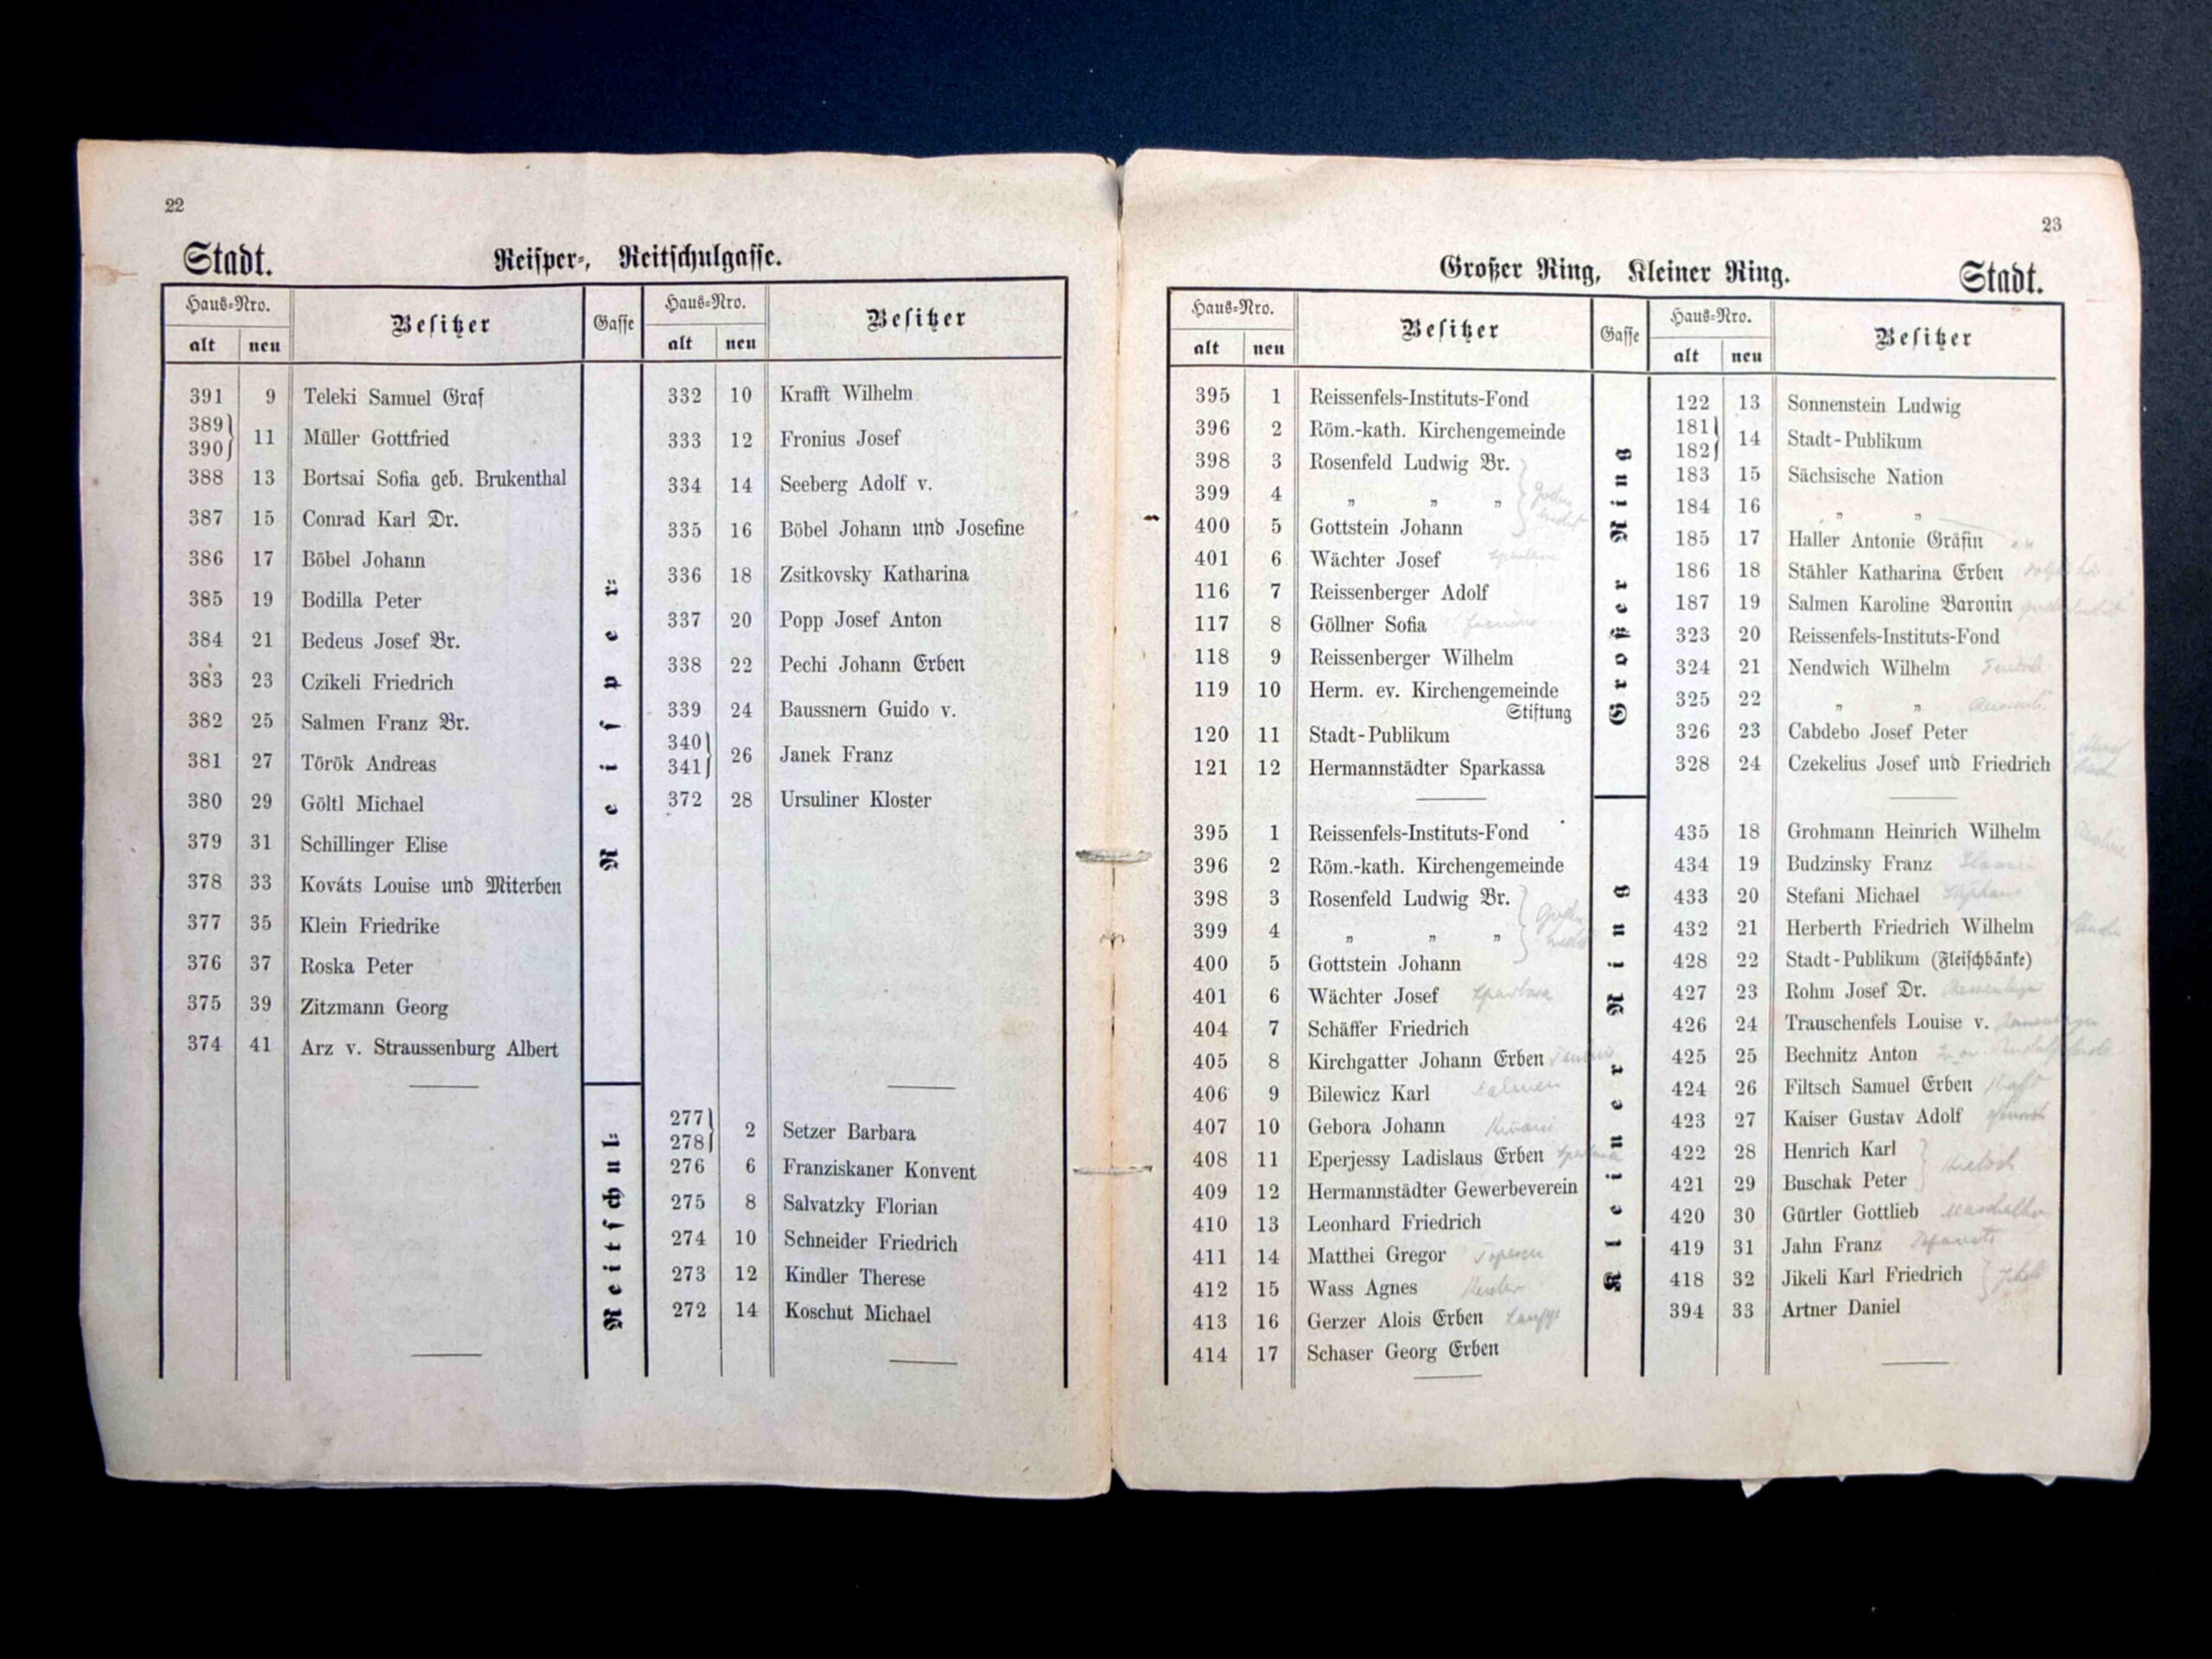 22
Stadt. Reisper-, Reitschulgasse.
Haus-Nro. Besitzer Gasse Haus-Nro. Besitzer
alt neu alt neu
391 9 Teleki Samuel Graf
389 } 390 } 11 Müller Gottfried
388 13 Bortsai Sofia geb. Brukenthal
387 15 Conrad Karl Dr.
386 17 Böbel Johann
385 19 Bodilla Peter
384 21 Bedeus Josef Br.
383 23 Czikeli Friedrich
382 25 Salmen Franz Br.
381 27 Török Andreas
380 29 Göltl Michael
379 31 Schillinger Elise
378 33 Kováts Louise und Miterben
377 35 Klein Friedrike
376 37 Roska Peter
375 39 Zitzmann Georg
374 41 Arz v. Straussenburg Albert
Reisper=
332 10 Krafft Wilhelm
333 12 Fronius Josef
334 14 Seeberg Adolf v.
335 16 Böbel Johann und Josefine
336 18 Zsitkovsky Katharina
337 20 Popp Josef Anton
338 22 Pechi Johann Erben
339 24 Baussnern Guido v.
340 } 341 } 26 Janek Franz
372 28 Ursuliner Kloster
Reitschul=
277 } 278 } 2 Setzer Barbara
276 6 Franziskaner Konvent
275 8 Salvatzky Florian
274 10 Schneider Friedrich
273 12 Kindler Therese
272 14 Koschut Michael
23
Großer Ring, Kleiner Ring. Stadt.
Haus-Nro. Besitzer Gasse Haus-Nro. Besitzer
alt neu alt neu
395 1 Reissenfels-Instituts-Fond
396 2 Röm.-kath. Kirchengemeinde
398 3 Rosenfeld Ludwig Br.
399 4 „ „ „
400 5 Gottstein Johann
401 6 Wächter Josef
116 7 Reissenberger Adolf
117 8 Göllner Sofia
118 9 Reissenberger Wilhelm
119 10 Herm. ev. Kirchengemeinde
Stiftung
120 11 Stadt-Publikum
121 12 Hermannstädter Sparkassa
Großer Ring
122 13 Sonnenstein Ludwig
181 } 182 } 14 Stadt-Publikum
183 15 Sächsische Nation
184 16 „ „
185 17 Haller Antonie Gräfin
186 18 Stähler Katharina Erben
187 19 Salmen Karoline Baronin
323 20 Reissenfels-Instituts-Fond
324 21 Nendwich Wilhelm
325 22 „ „
326 23 Cabdebo Josef Peter
328 24 Czekelius Josef und Friedrich
395 1 Reissenfels-Instituts-Fond
396 2 Röm.-kath. Kirchengemeinde
398 3 Rosenfeld Ludwig Br.
399 4 „ „ „
400 5 Gottstein Johann
401 6 Wächter Josef
404 7 Schäffer Friedrich
405 8 Kirchgatter Johann Erben
406 9 Bilewicz Karl
407 10 Gebora Johann
408 11 Eperjessy Ladislaus Erben
409 12 Hermannstädter Gewerbeverein
410 13 Leonhard Friedrich
411 14 Matthei Gregor
412 15 Wass Agnes
413 16 Gerzer Alois Erben
414 17 Schaser Georg Erben
Kleiner Ring
435 18 Grohmann Heinrich Wilhelm
434 19 Budzinsky Franz
433 20 Stefani Michael
432 21 Herberth Friedrich Wilhelm
428 22 Stadt-Publikum (Fleischbänke)
427 23 Rohm Josef Dr.
426 24 Trauschenfels Louise v.
425 25 Bechnitz Anton
424 26 Filtsch Samuel Erben
423 27 Kaiser Gustav Adolf
422 28 Henrich Karl
421 29 Buschak Peter
420 30 Gürtler Gottlieb
419 31 Jahn Franz
418 32 Jikeli Karl Friedrich
394 33 Artner Daniel